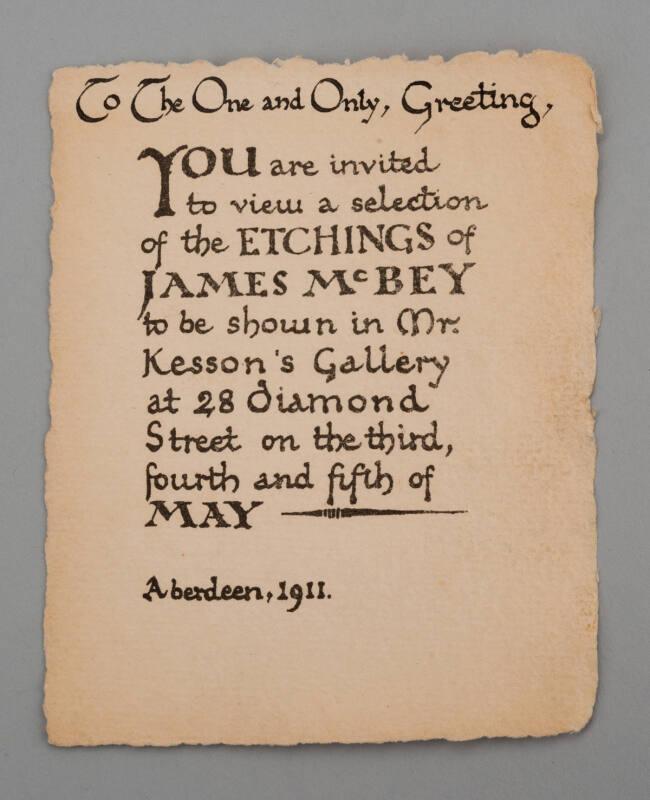 To The One and Only, Greeting,
YOU are invited
to view a selection
of the ETCHINGS of
JAMES McBEY
to be shown in Mr.
Kesson's Gallery
at 28 diamond
Street on the third,
fourth and fifth of
MAY
Aberdeen, 1911.